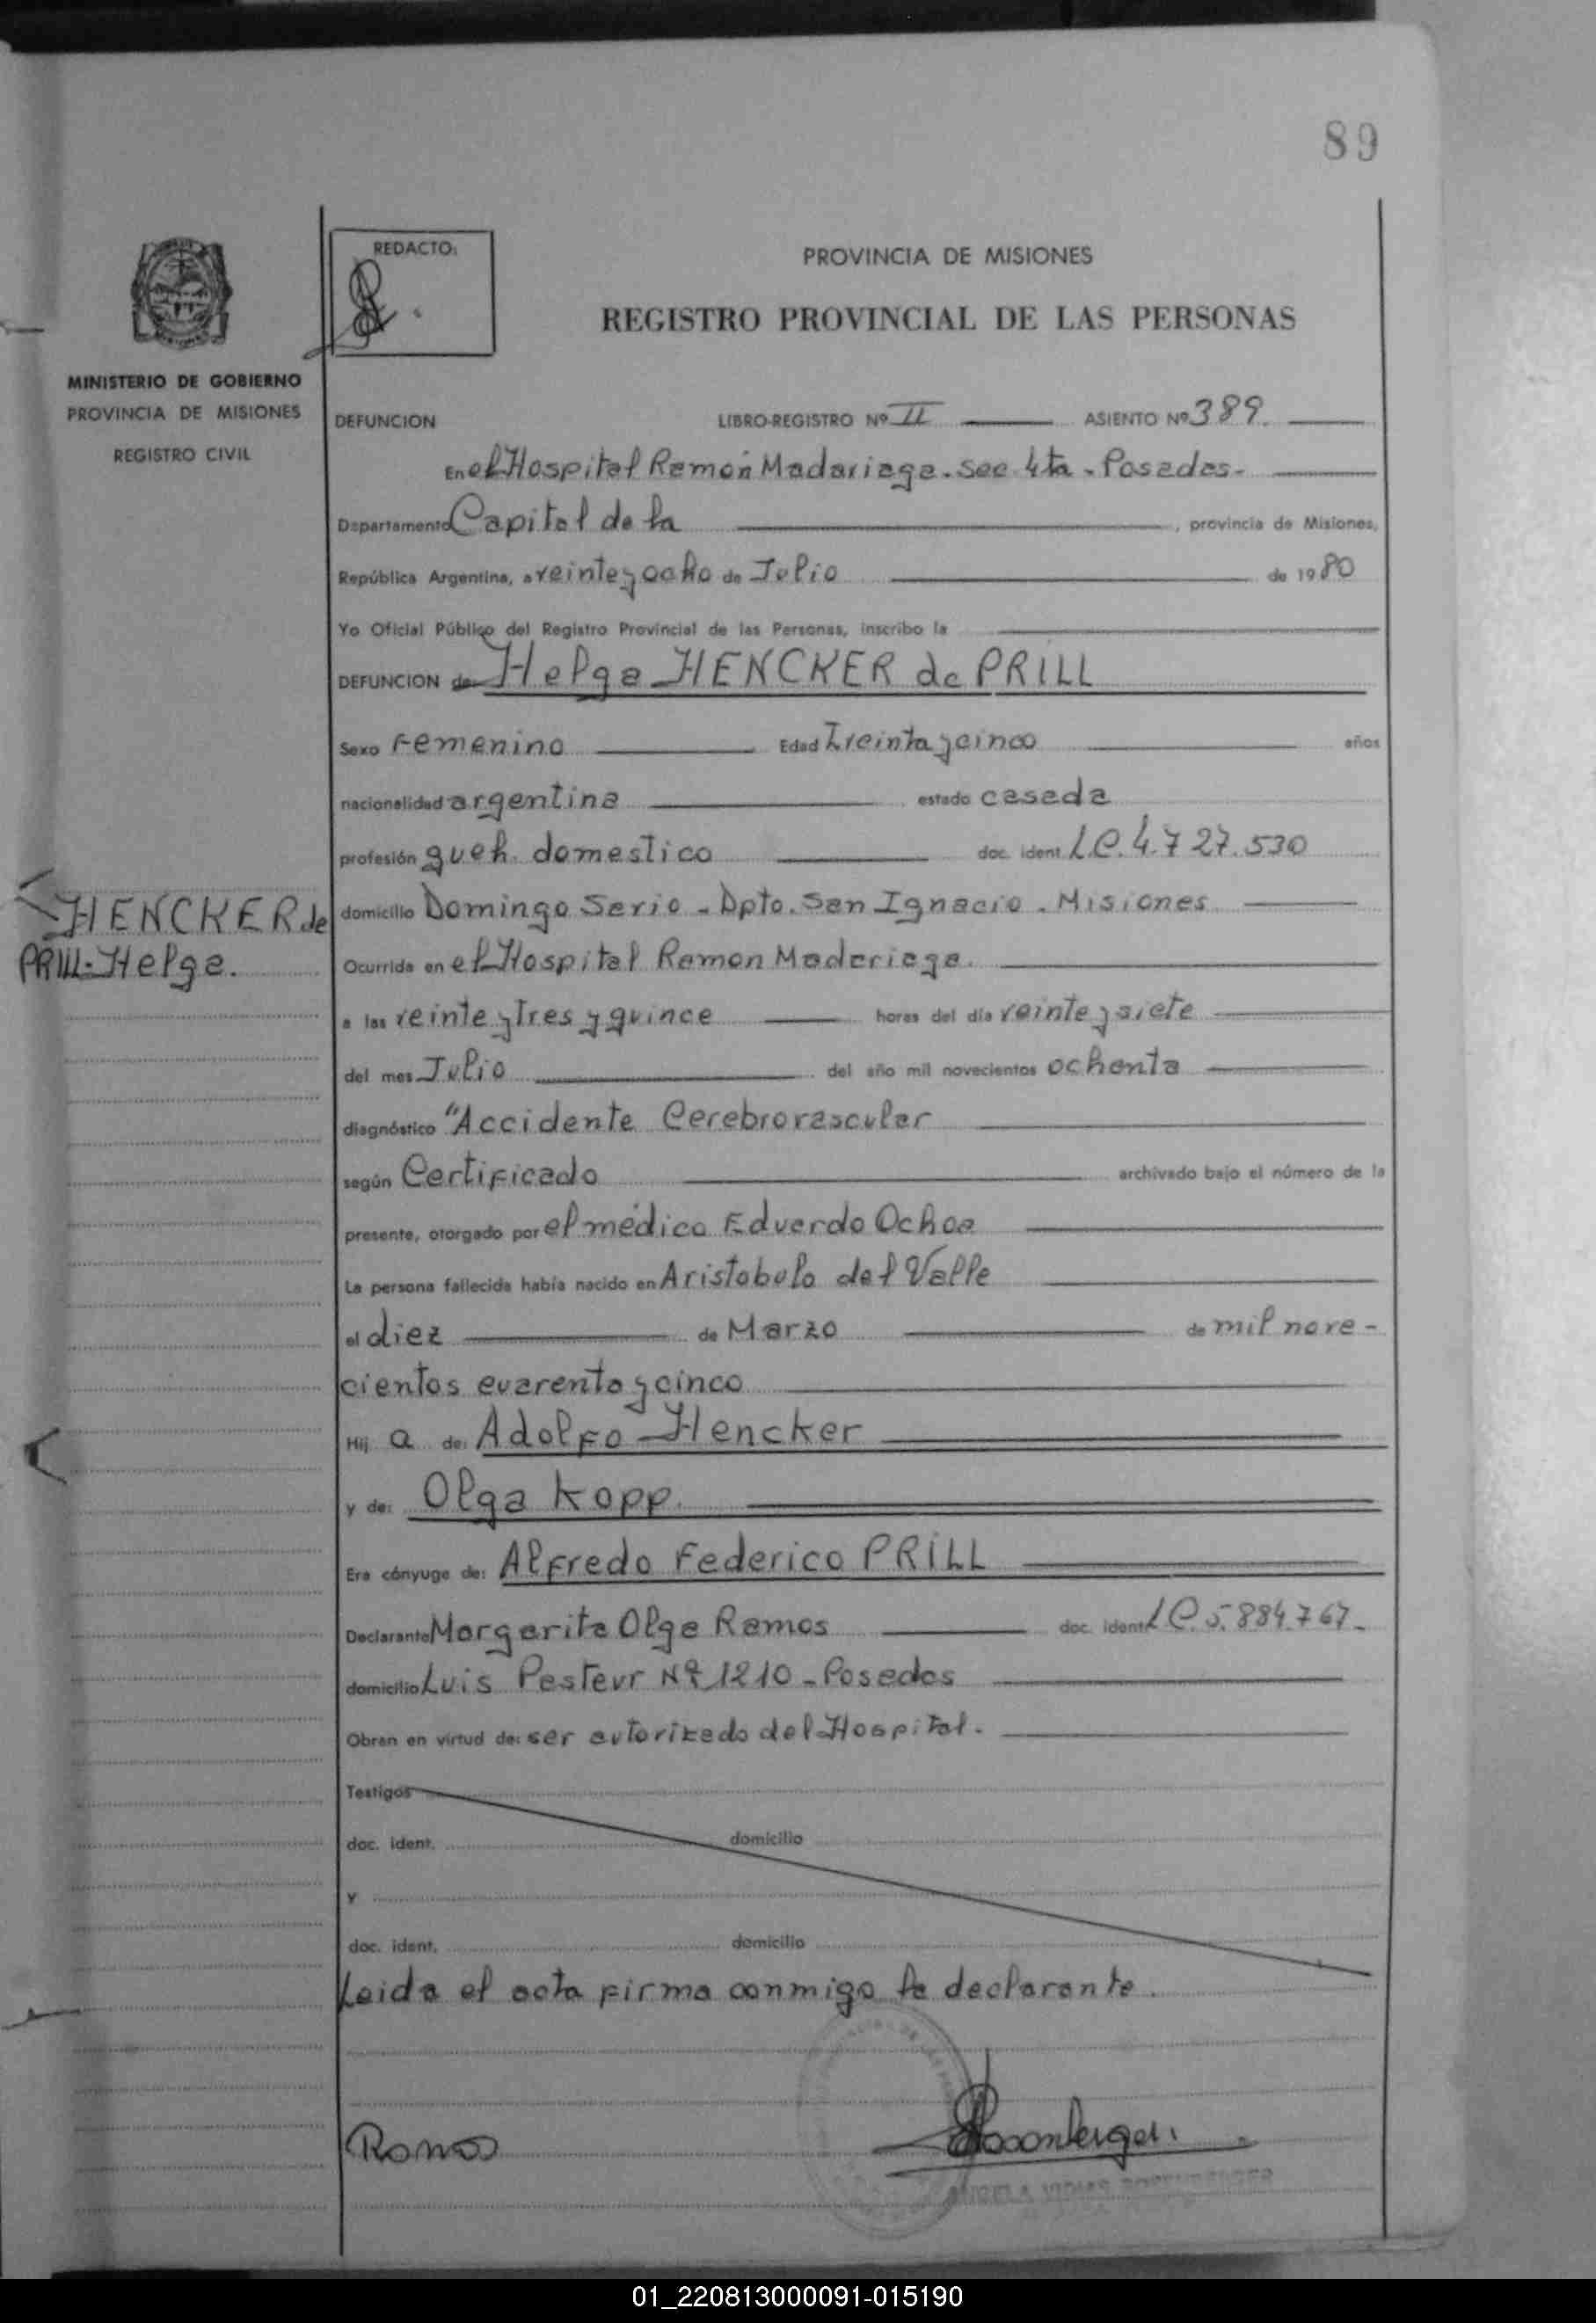 89
REDACTO:
PROVINCIA DE MISIONES
REGISTRO PROVINCIAL DE LAS PERSONAS
MINISTERIO DE GOBIERNO
PROVINCIA DE MISIONES
REGISTRO CIVIL
DEFUNCION LIBRO-REGISTRO Nº II ASIENTO Nº 389.
En el Hospital Ramón Madariaga. Sec 4ta - Posadas-
Departamento Capital de la , provincia de Misiones,
República Argentina, a veinte y ocho de Julio de 1980
Yo Oficial Público del Registro Provincial de las Personas, inscribo la
DEFUNCION de Helga HENCKER de PRILL
Sexo Femenino Edad Treinta y cinco años
nacionalidad argentina estado casada
profesión queh. domestico doc. ident. LC. 4.727.530
HENCKER de
PRILL-Helga.
domicilio Domingo Savio - Dpto. San Ignacio. Misiones
Ocurrida en el Hospital Ramon Madariaga.
a las veinte y Tres y quince horas del día veinte y siete
del mes Julio del año mil novecientos ochenta
diagnóstico "Accidente Cerebrovascular
según Certificado archivado bajo el número de la
presente, otorgado por el médico Eduardo Ochoa
La persona fallecida había nacido en Aristobulo del Valle
el diez de Marzo de mil nove-
cientos cuarenta y cinco
Hij a de: Adolfo Hencker
y de: Olga Kopp.
Era cónyuge de: Alfredo Federico PRILL
Declarante Margarita Olga Ramos doc. ident. LC. 5.884.767-
domicilio Luis Pasteur Nº 1210 - Posadas
Obran en virtud de: ser autorizado del Hospital.
Testigos
doc. ident. domicilio
y
doc. ident. domicilio
Leida el acta firma conmigo la declarante.
Ramos
01_220813000091-015190